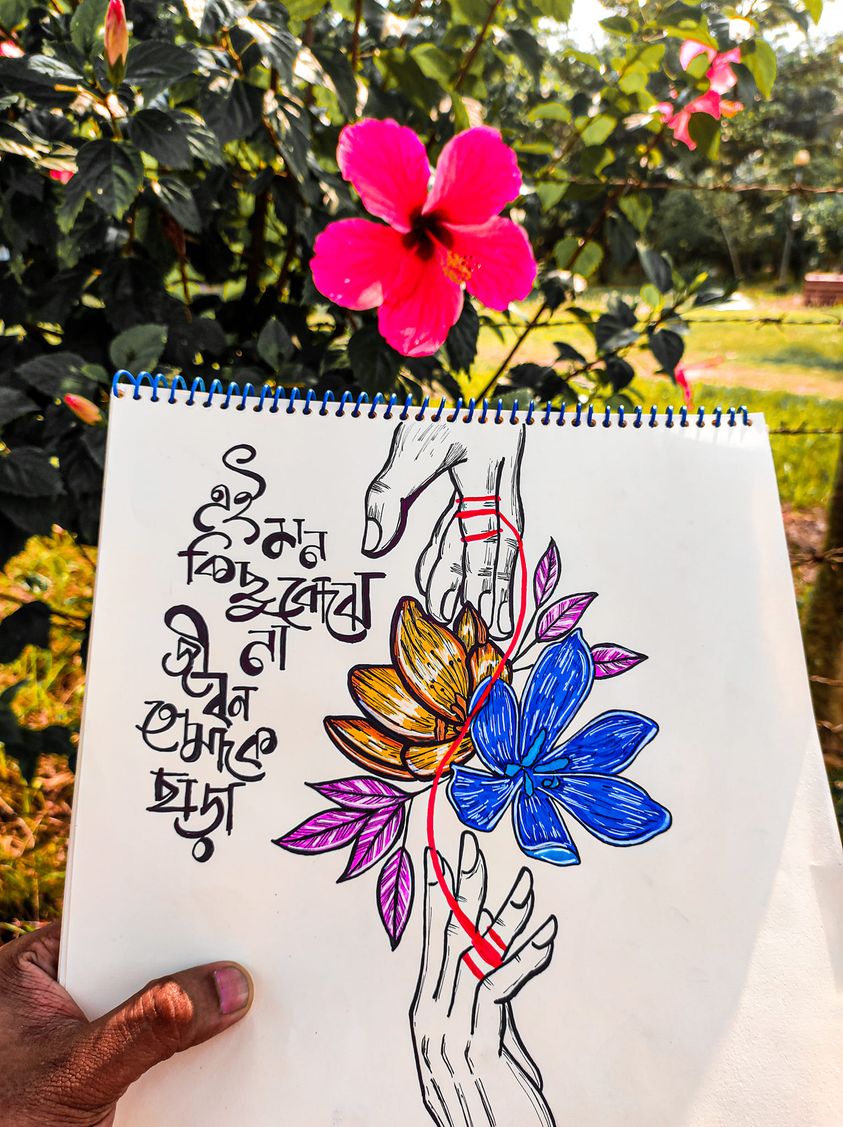 এই
মন
কিছু বোঝে
না
জীবন
তোমাকে
ছাড়া